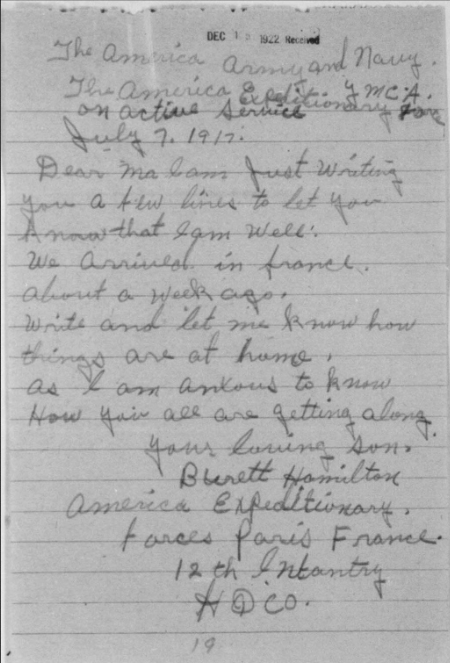 DEC 1 1922 Received
The America Army and Navy.
The America Expeditionary Y MCA.
on active Service Force
July 7. 1917.
Dear Ma I am Just Writing
you a few lines to let you
know that I am Well.
We arrived in france.
about a week ago.
Write and let me know how
things are at home.
as I am anxous to know
How you all are getting along.
your loving son.
Hamilton
America Expeditionary.
forces paris France.
12 th Infantry
H D CO.
19